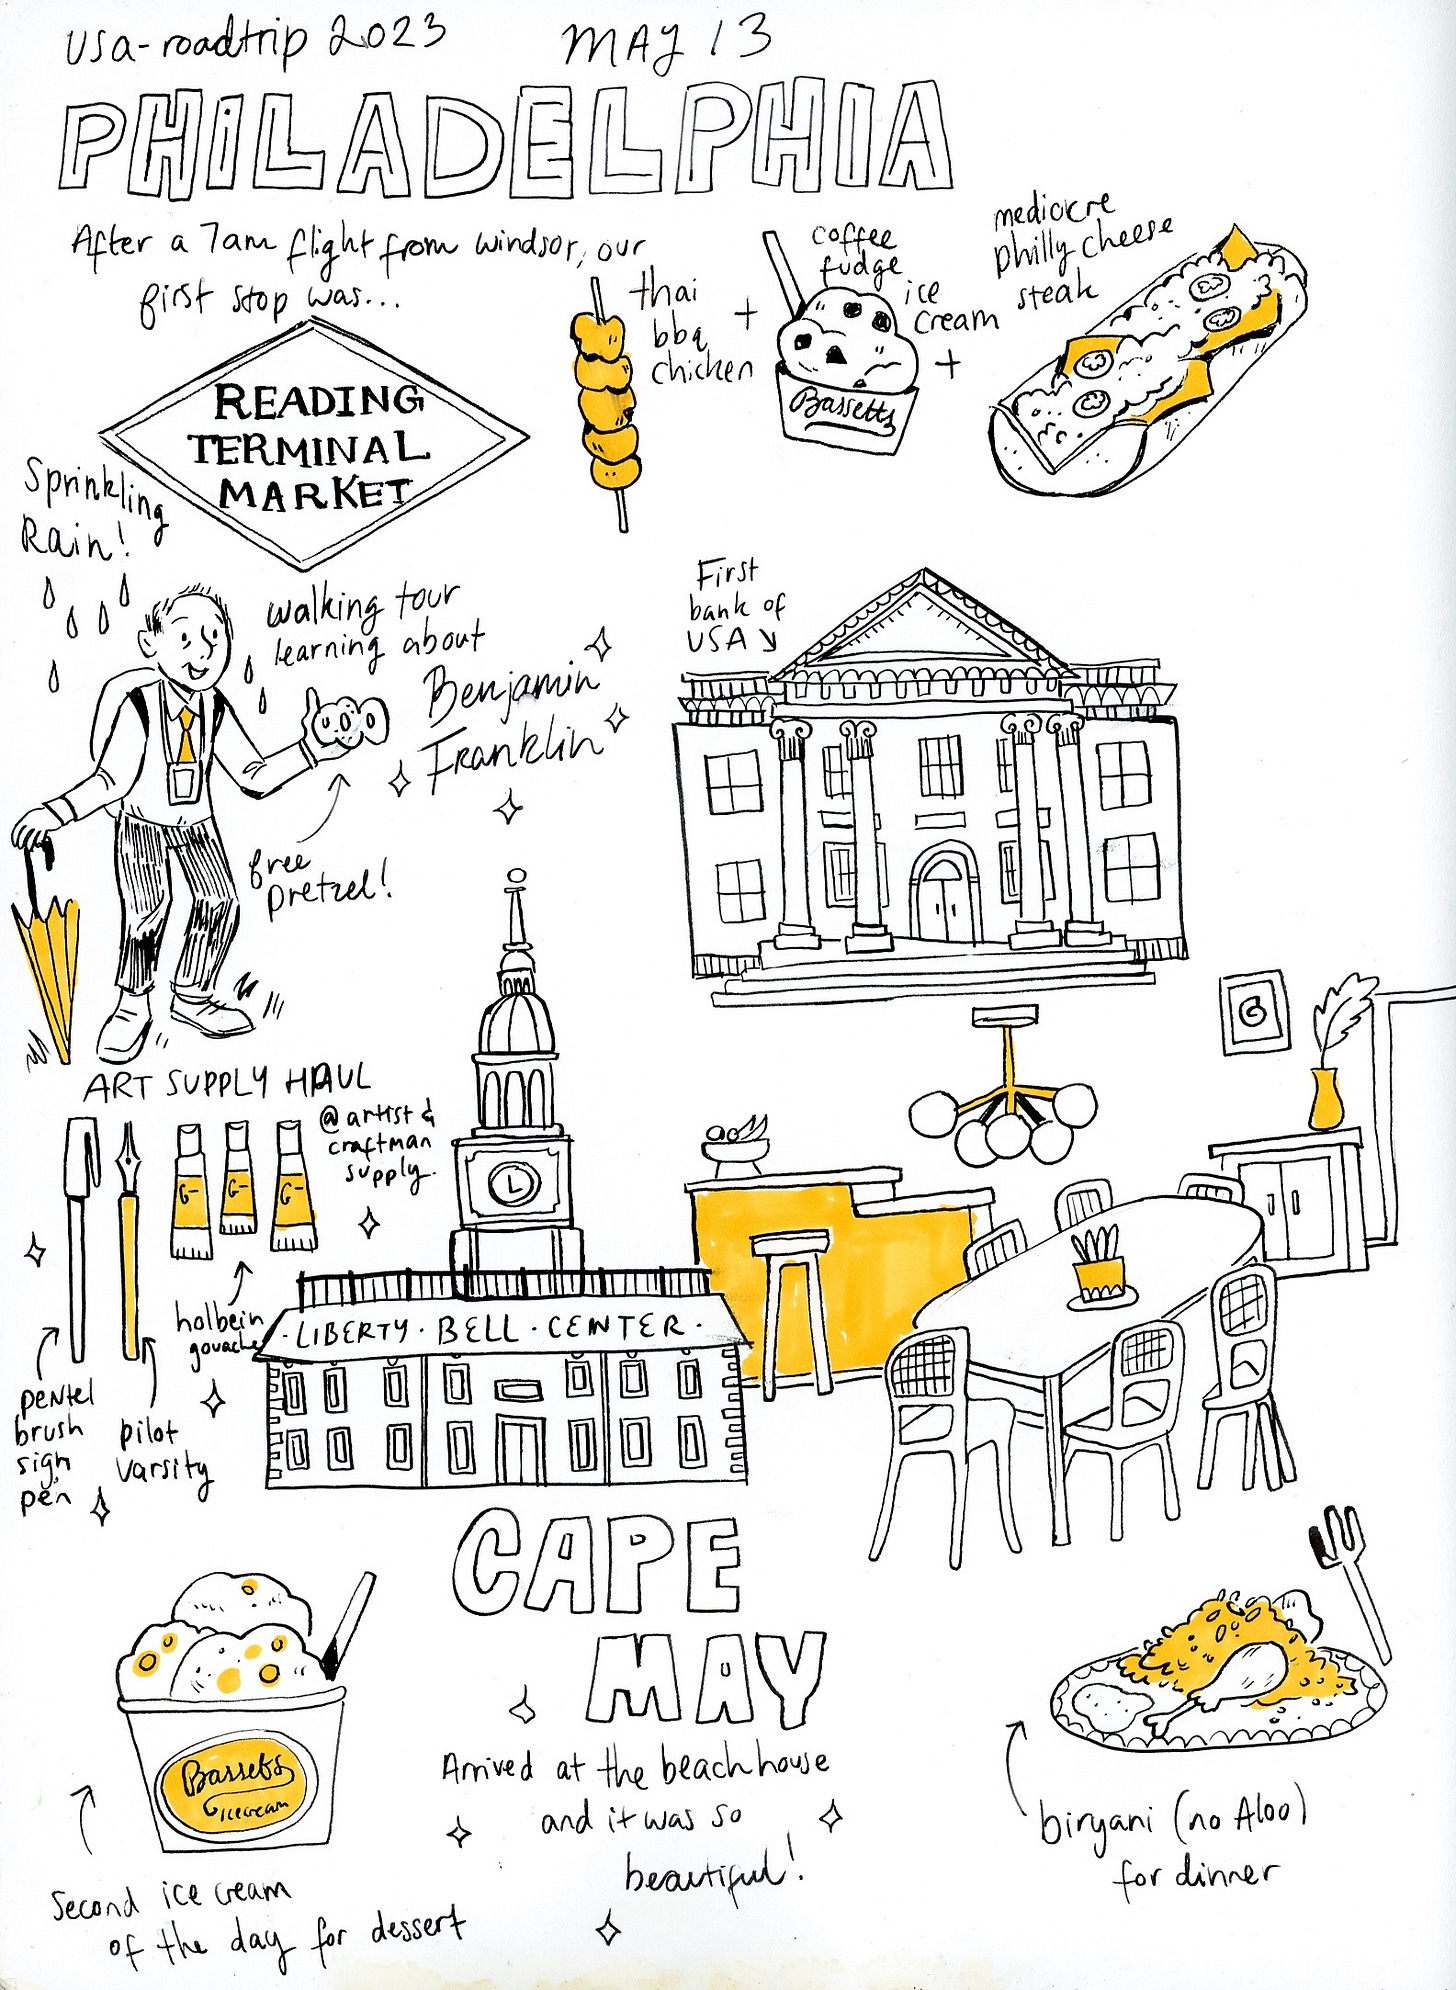 usa-roadtrip 2023
MAY 13
PHILADELPHIA
After a 7am flight from windsor, our
first stop was...
READING
TERMINAL
MARKET
thai
bbq
chicken
+
coffee
fudge
ice
cream
Bassetts
+
mediocre
philly cheese
steak
Sprinkling
Rain!
walking tour
learning about
Benjamin
Franklin
free
pretzel!
First
bank of
USA
ART SUPPLY HAUL
@ artist &
craftman
supply.
G-
G-
G-
holbein
gouache
pentel
brush
sign
pen
pilot
varsity
L
· LIBERTY · BELL · CENTER ·
G
CAPE
MAY
Arrived at the beachhouse
and it was so
beautiful!
Bassetts
icecream
Second ice cream
of the day for dessert
biryani (no Aloo)
for dinner